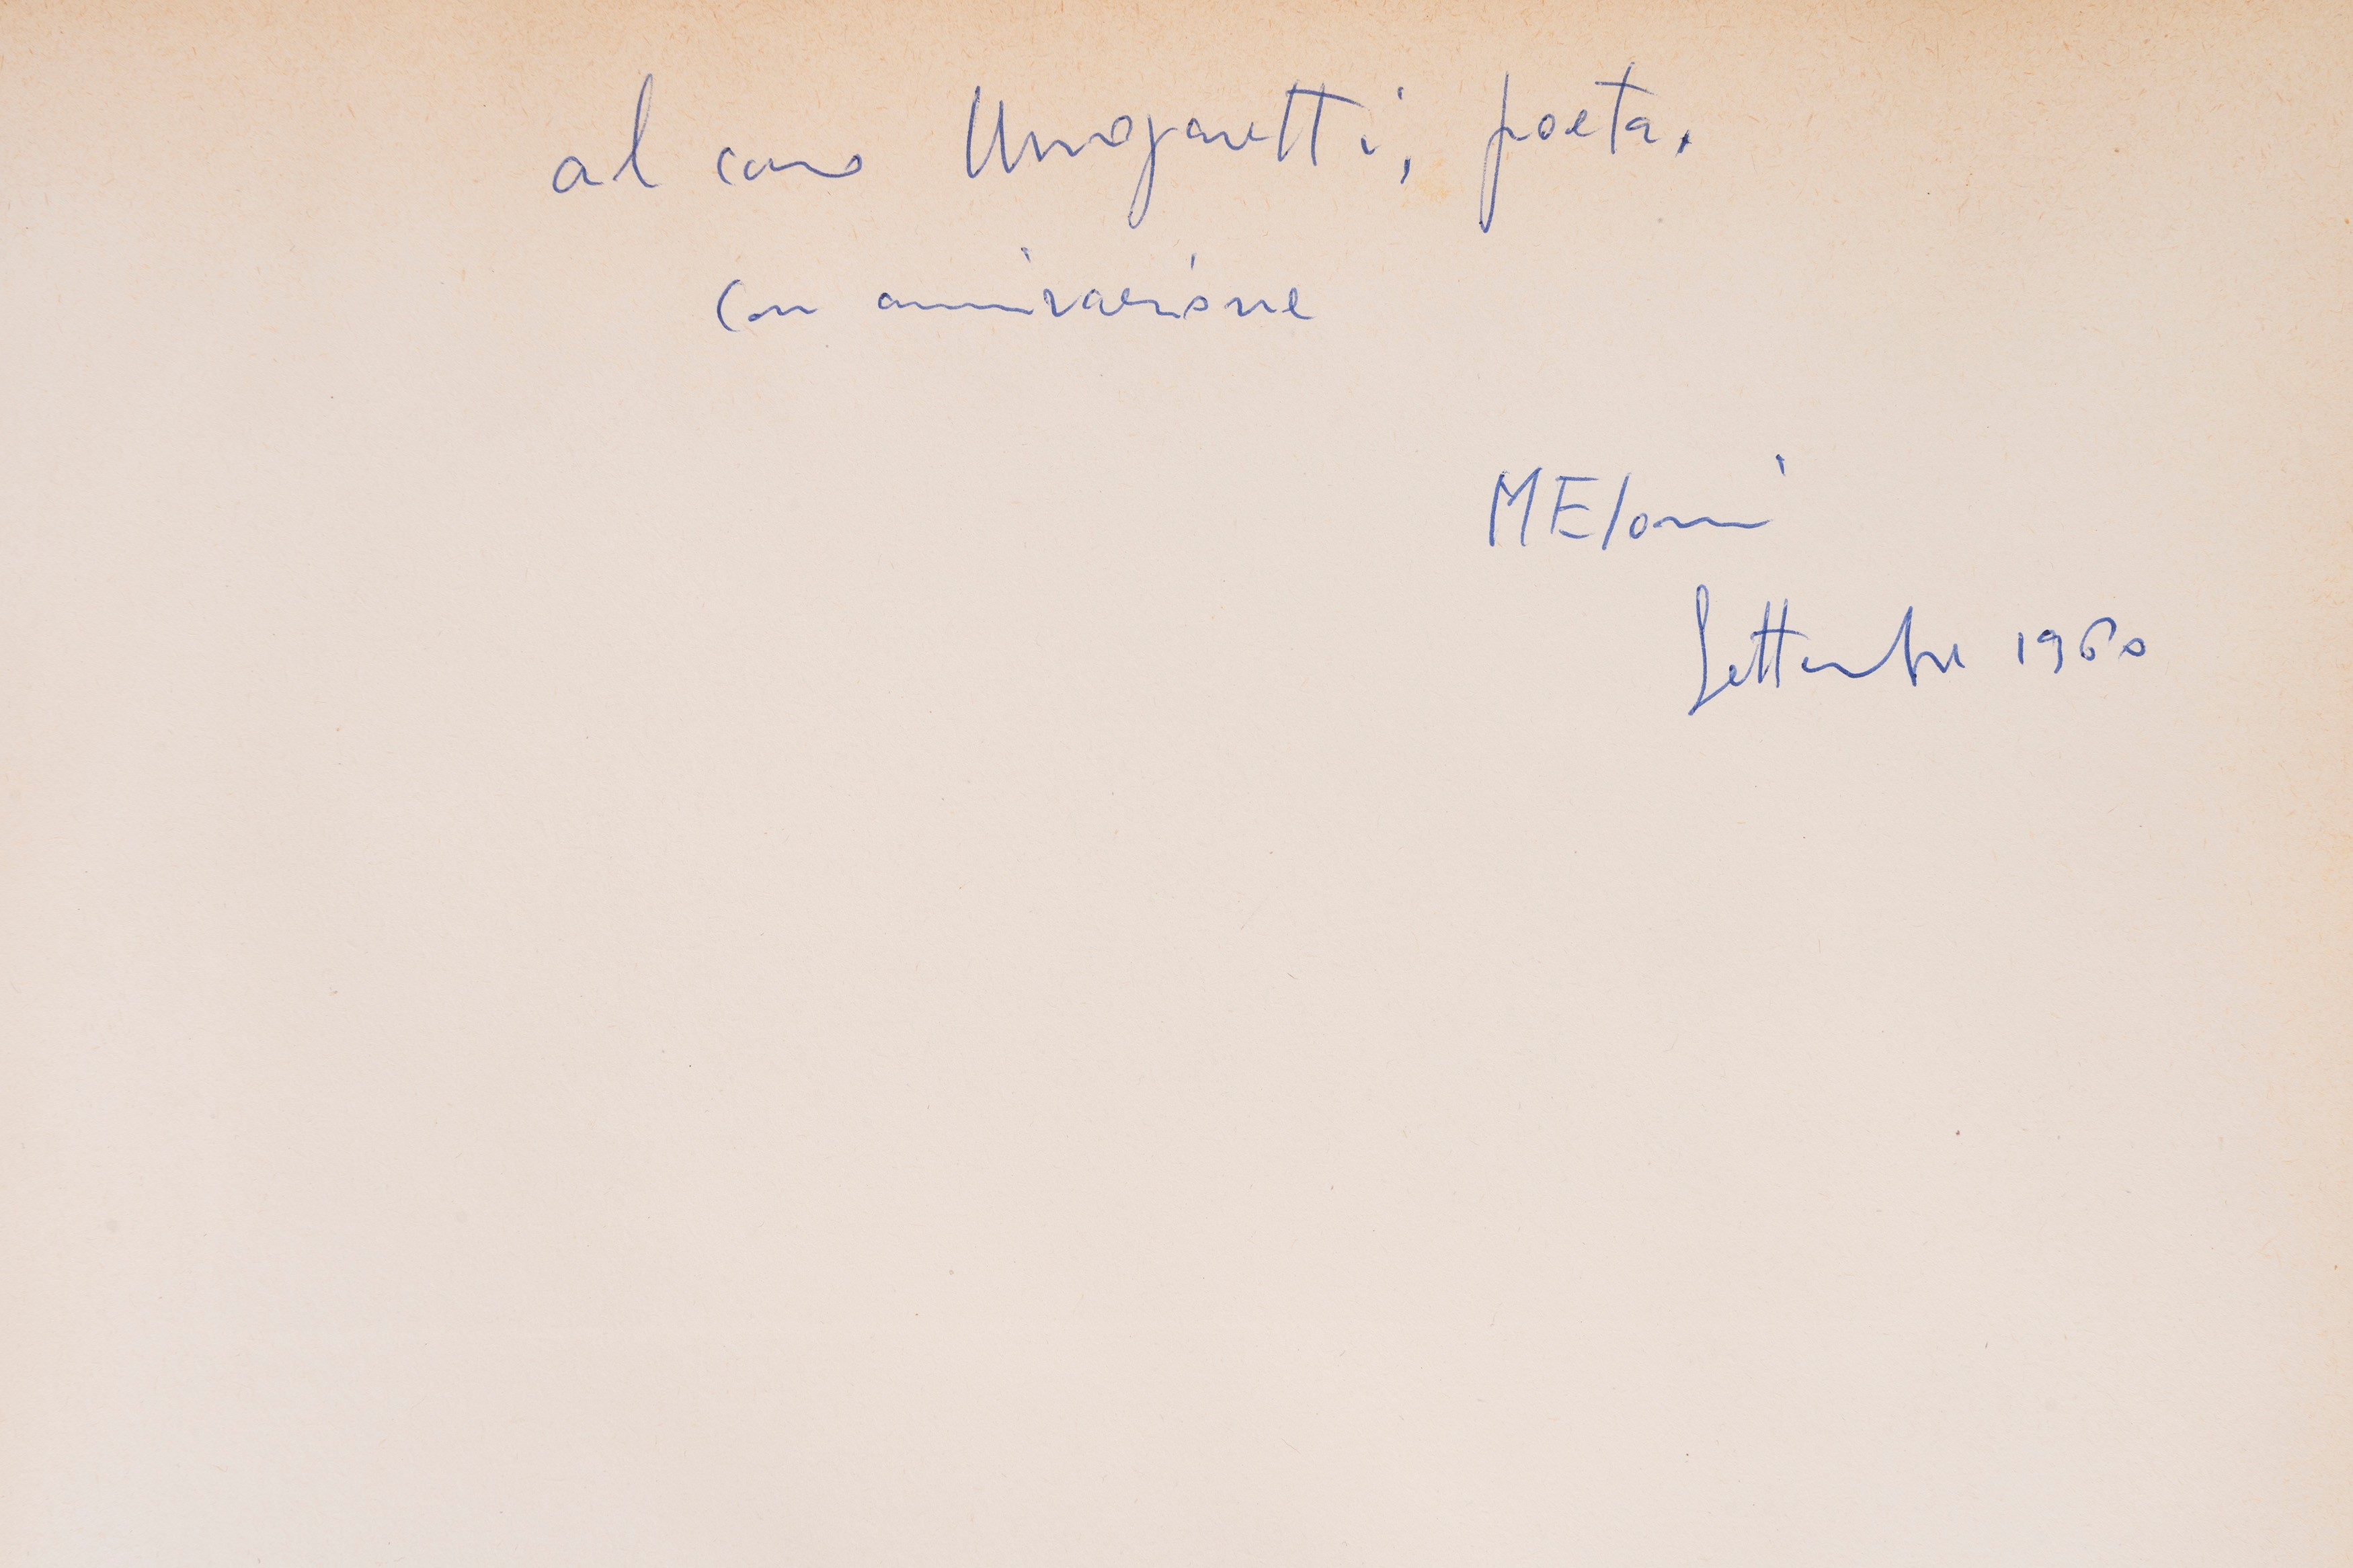 al caro Ungaretti, poeta,
con ammirazione
MEloni
Settembre 1960